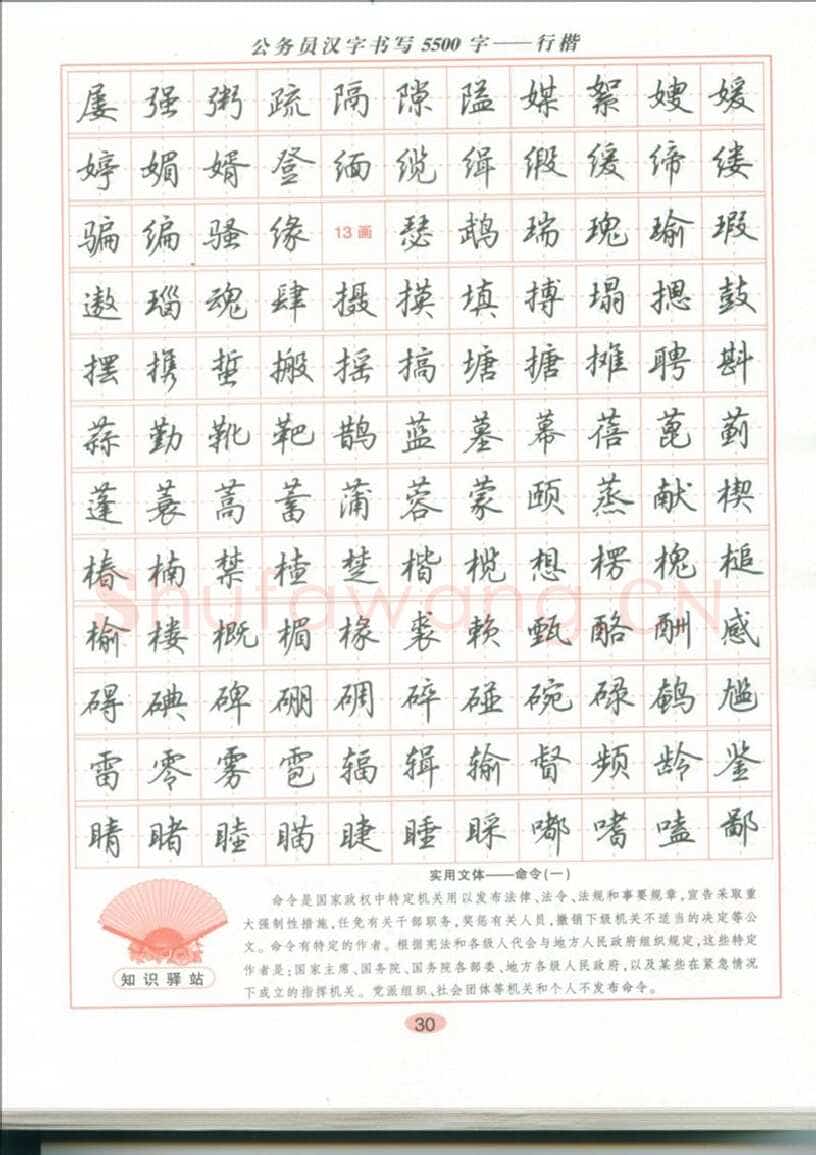 公务员汉字书写5500字——行楷
屡强粥疏隔隙隘媒絮嫂媛
婷媚婿登缅缆缉缎缓缔缕
骗编骚缘13画瑟鹉瑞瑰瑜瑕
遨瑙魂肆摄摸填搏塌摁鼓
摆携蜇搬摇搞塘搪摊聘斟
蒜勤靴靶鹊蓝墓幕蓓蓖蓟
蓬蓑蒿蓄蒲蓉蒙颐蒸献楔
椿楠禁楂楚楷榄想楞槐槌
榆楼概楣椽裘赖甄酪酬感
碍碘碑硼碉碎碰碗碌鹌尴
雷零雾雹辐辑输督频龄鉴
睛睹睦瞄睫睡睬嘟嗜嗑鄙
Shufawang.CN
实用文体——命令(一)
命令是国家政权中特定机关用以发布法律、法令、法规和事要规章,宣告采取重
大强制性措施,任免有关干部职务,奖惩有关人员,撤销下级机关不适当的决定等公
文。命令有特定的作者。根据宪法和各级人代会与地方人民政府组织规定,这些特定
作者是:国家主席、国务院、国务院各部委、地方各级人民政府,以及某些在紧急情况
下成立的指挥机关。党派组织、社会团体等机关和个人不发布命令。
知识驿站
30